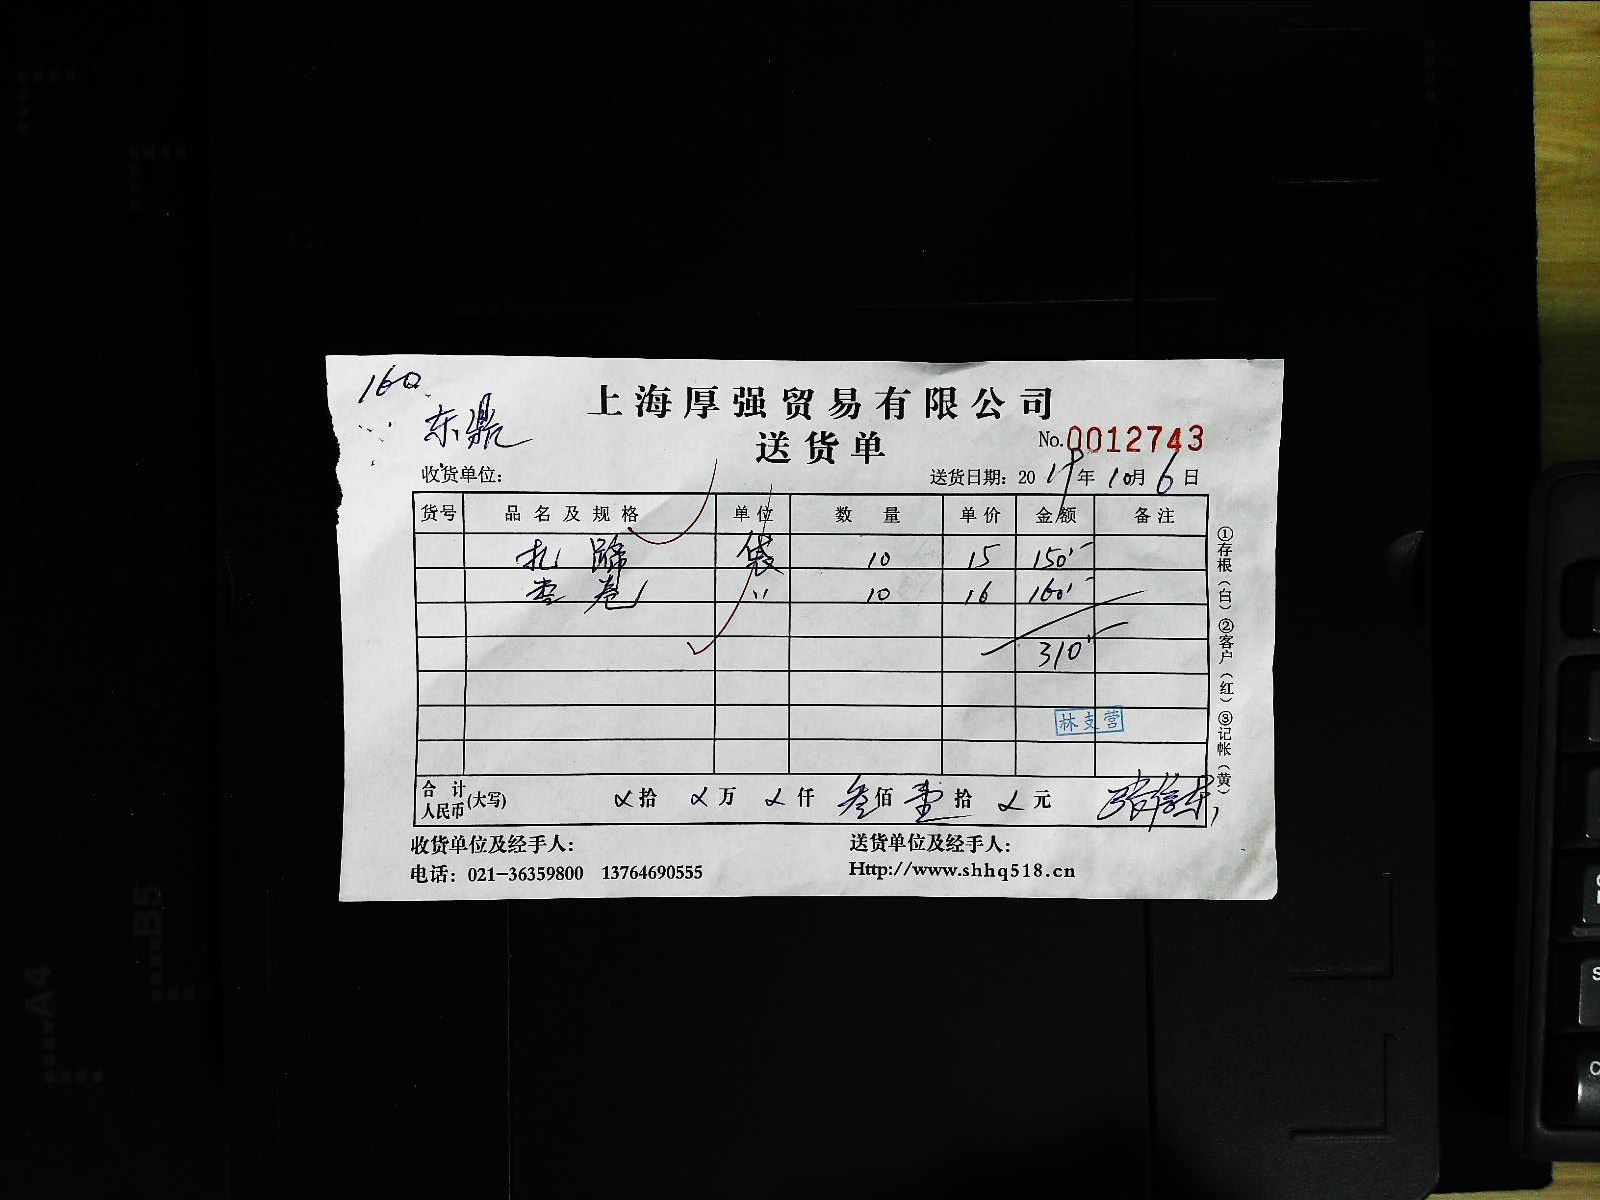 160
东鼎
上海厚强贸易有限公司
送货单
No.0012743
收货单位:
送货日期: 2019年10月6日
货号 品名及规格 单位 数量 单价 金额 备注
扎蹄 袋 10 15 150
卷 〃 10 16 160
310
林支营
合计人民币(大写) 拾 万 仟 叁佰 壹拾 元
①存根(白)②客户(红)③记帐(黄)
收货单位及经手人:
送货单位及经手人:
电话: 021-36359800 13764690555
Http://www.shhq518.cn
A4
B5